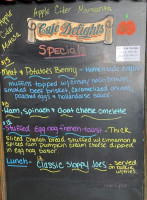 Apple Cider Mamanita
Apple
Cider
Mimosa
Café Delights
Specials
#1
Meat & Potatoes Benny - Homemade english
muffins topped w/ crispy hash browns,
smoked beef brisket, caramelized onions,
poached eggs & hollandaise sauce
#2
Ham, Spinach & Goat cheese omelette
#3
Stuffed Egg nog French toast - Thick
sliced Cream bread stuffed w/ cinnamon &
spiced rum Pumpkin cream cheese dipped
in egg nog batter
Lunch - Classic Sloppy Joes - Served
on roll
w/ fries